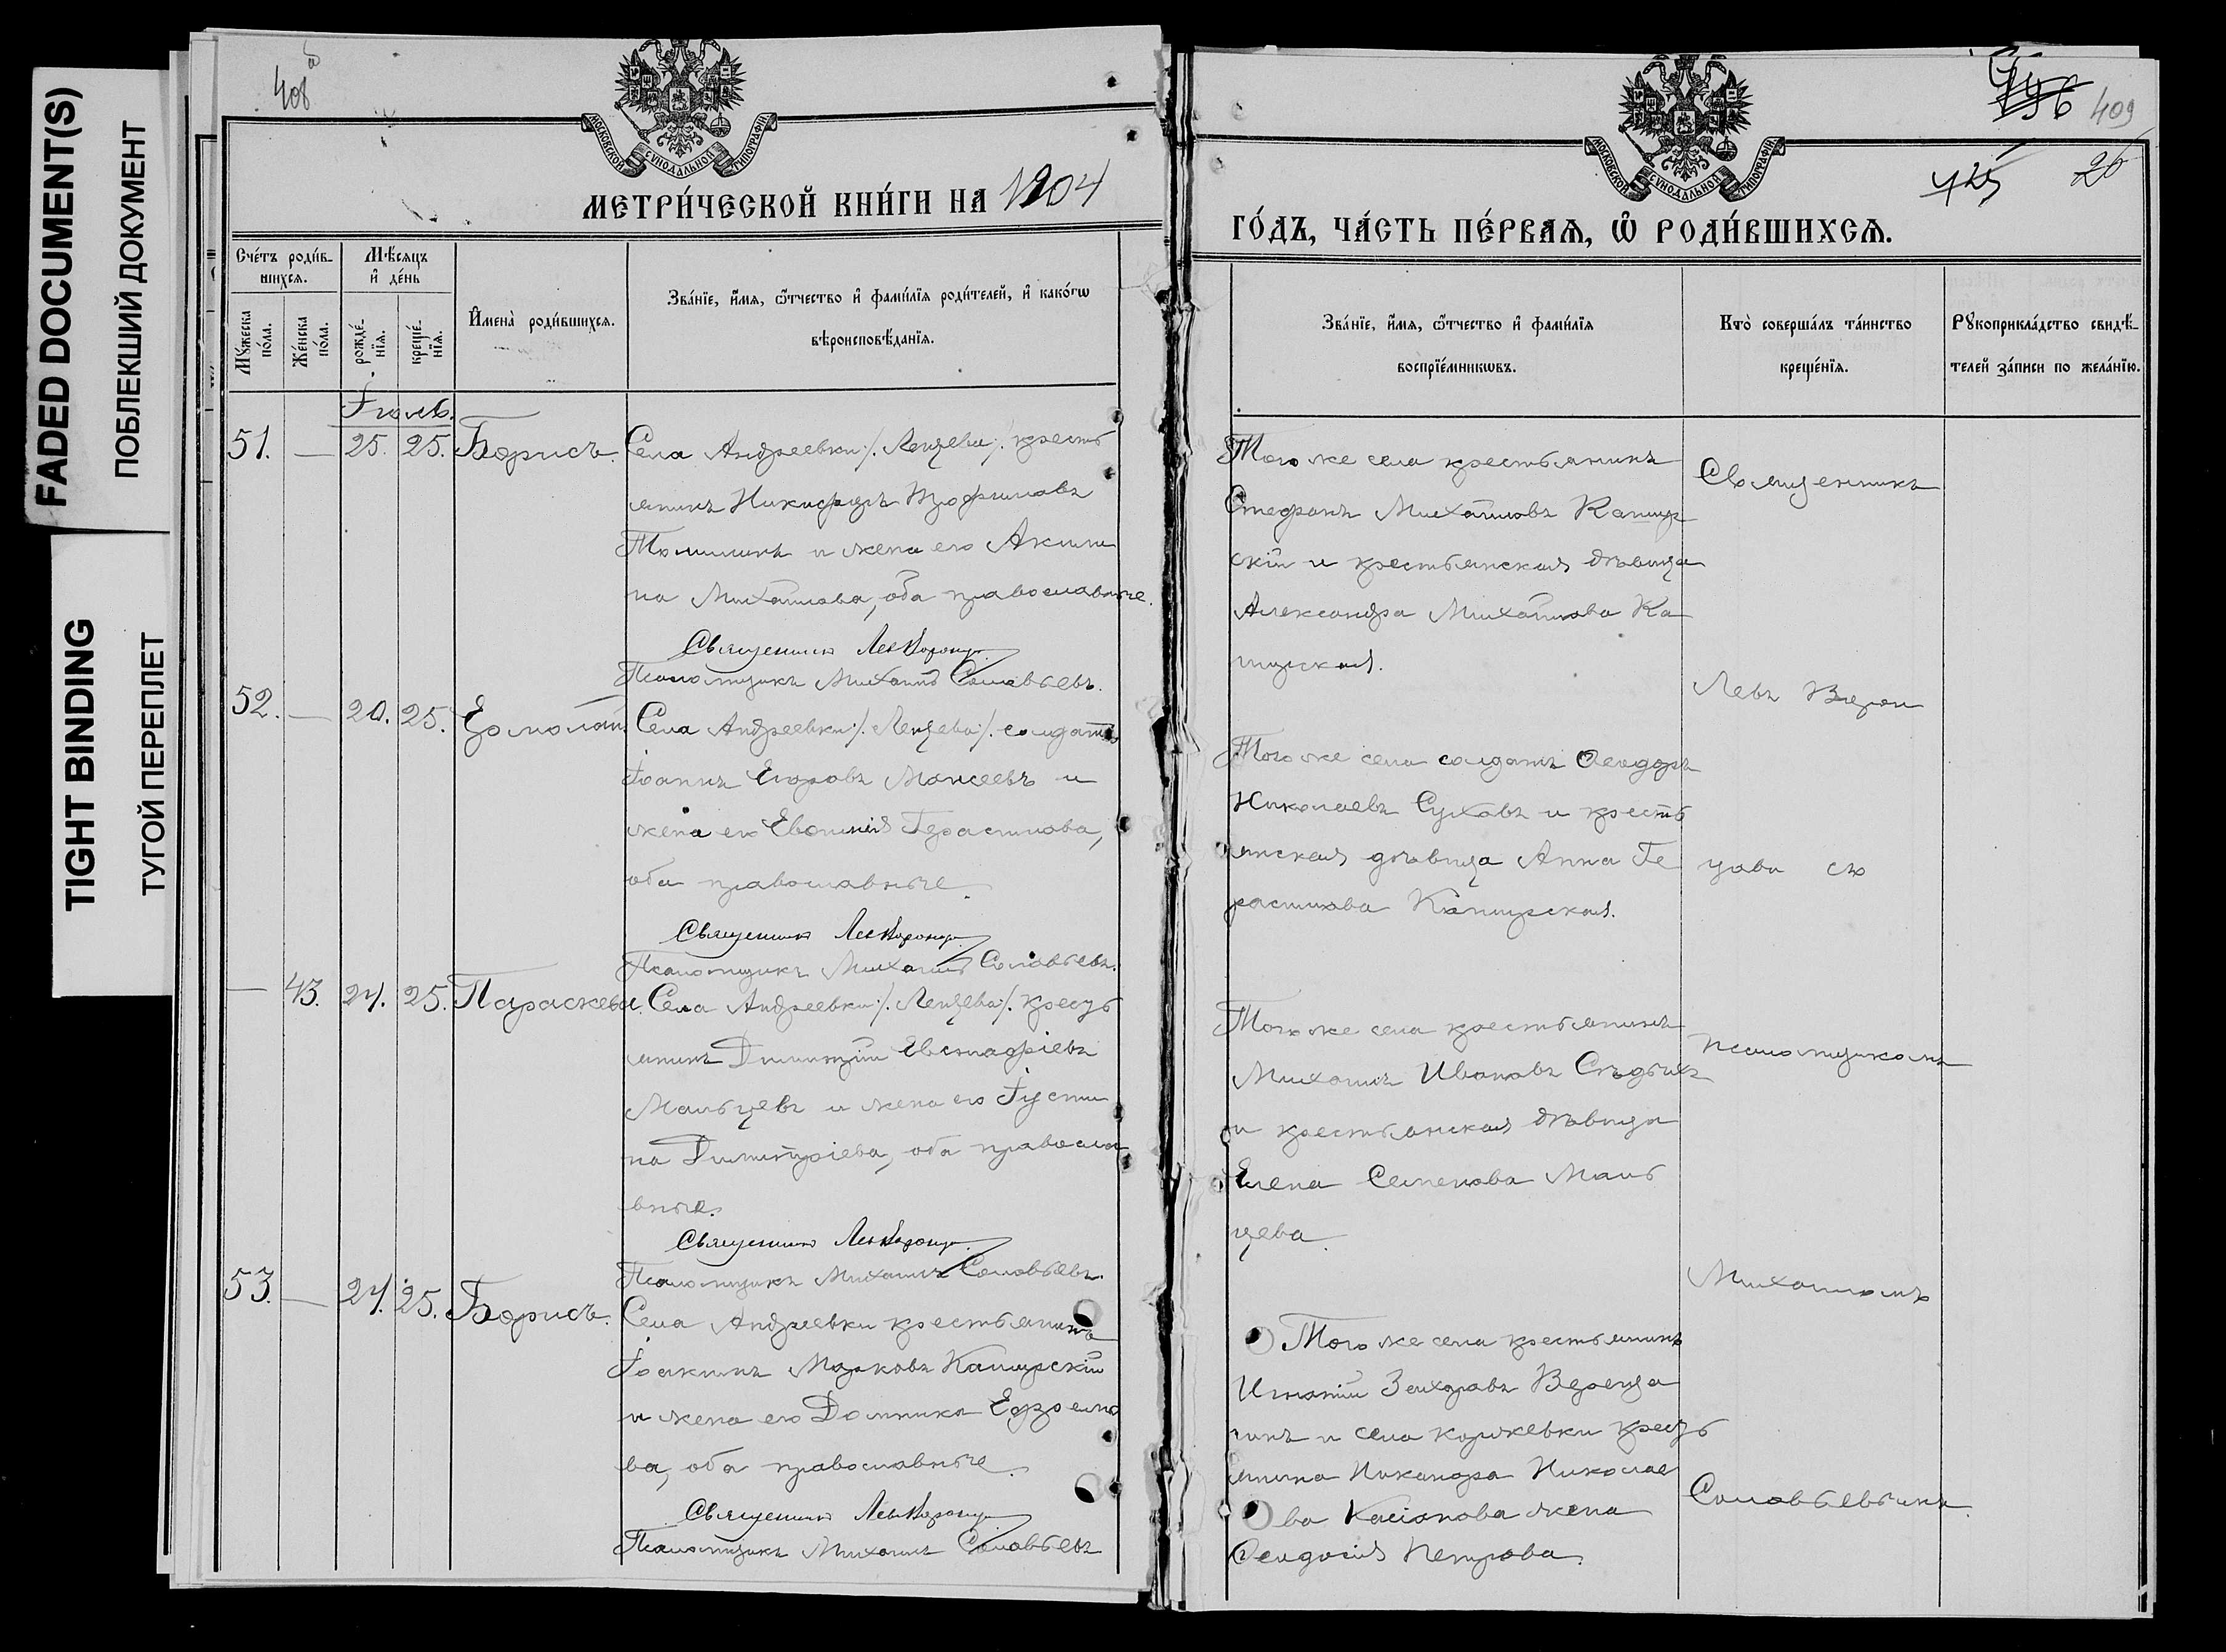 FADED DOCUMENT(S)
ПОБЛЕКШИЙ ДОКУМЕНТ
TIGHT BINDING
ТУГОЙ ПЕРЕПЛЕТ
408
МОСКОВСКОЙ СѴНОДАЛЬНОЙ ТИПОГРАФІИ
МЕТРИ́ЧЕСКОЙ КНИ́ГИ НА 1904
Сче́тъ роди́в-
шихсѧ.
Мѣ́сяцъ
и҆ де́нь
Мꙋ́жеска
по́ла.
Же́нска
по́ла.
рожде́-
нїѧ.
креще́-
нїѧ.
И҆мена̀ роди́вшихсѧ.
Зва́нїе, и҆́мѧ, ѻ҆́тчество и҆ фамі́лїѧ роди́телей, и҆ како́гѡ
вѣроисповѣ́данїѧ.
Іюль.
51. — 25. 25. Борисъ. Села Андреевки /. Ленцева /. кресть
янинъ Никифоръ Трофимовъ
Томилинъ и жена его Акили
на Михайлова, оба православные.
Священникъ Левъ Воронцо
Псаломщикъ Михаилъ Соловьевъ.
52. — 20. 25. Ермолай. Села Андреевки /. Ленцева /. солдатъ
Іоаннъ Егоровъ Моисеевъ и
жена его Евфимія Герасимова,
оба православные.
Священникъ Левъ Воронцо
Псаломщикъ Михаилъ Соловьевъ.
— 43. 24. 25. Параскева. Села Андреевки /. Ленцева /. кресть
янинъ Димитрій Евстафіевъ
Мальцевъ и жена его Іусти
на Димитріева, оба правосла
вные.
Священникъ Левъ Воронцо
Псаломщикъ Михаилъ Соловьевъ.
53. — 24. 25. Борисъ. Села Андреевки крестьянинъ
Іоакимъ Марковъ Капшурскій
и жена его Домника Ефремо
ва, оба православные.
Священникъ Левъ Воронцо
Псаломщикъ Михаилъ Соловьевъ
409
425
26
МОСКОВСКОЙ СѴНОДАЛЬНОЙ ТИПОГРАФІИ
ГО́ДЪ, ЧА́СТЬ ПЕ́РВАѦ, Ѡ҆ РОДИ́ВШИХСѦ.
Зва́нїе, и҆́мѧ, ѻ҆́тчество и҆ фамі́лїѧ
воспрїе́мникѡвъ.
Кто̀ соверша́лъ та́инство
креще́нїѧ.
Рꙋкоприкла́дство свидѣ́-
телей за́писи по жела́нїю.
Того же села крестьянинъ
Стефанъ Михайловъ Капшур
скій и крестьянская дѣвица
Александра Михайлова Ка
пшурская.
Того же села солдатъ Ѳеодоръ
Николаевъ Суховъ и кресть
янская дѣвица Анна Ге
расимова Капшурская.
Того же села крестьянинъ
Михаилъ Ивановъ Сѣдыхъ
и крестьянская дѣвица
Елена Семенова Маль
цева.
Того же села крестьянинъ
Игнатій Захаровъ
и села Коржевки кресть
янина Никанора Николае
ва Касіанова жена
Ѳеодосія Петрова.
Священникъ
Левъ Ворон
цовъ съ
псаломщикомъ
Михаиломъ
Соловьевымъ.